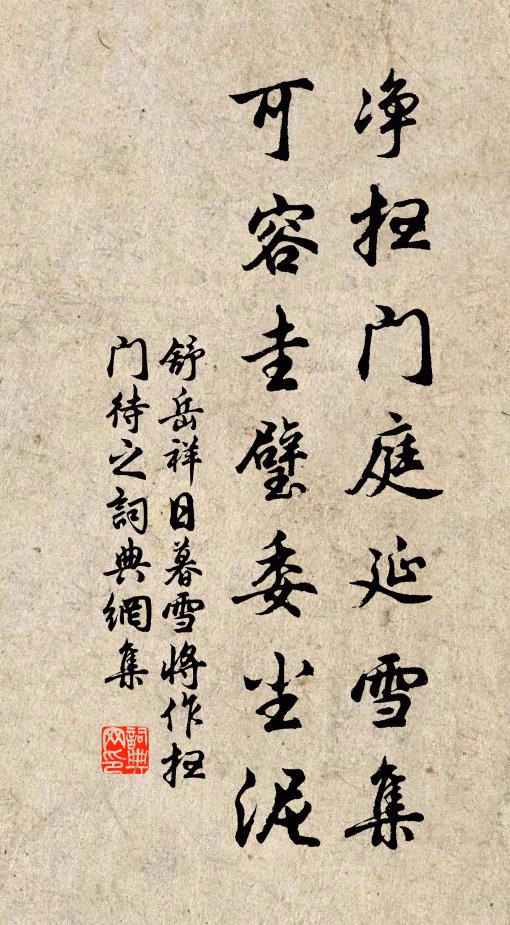 净扫门庭延雪集
可容圭璧委尘泥
舒岳祥日暮雪将作扫
门待之詞典網集
詞典
网印